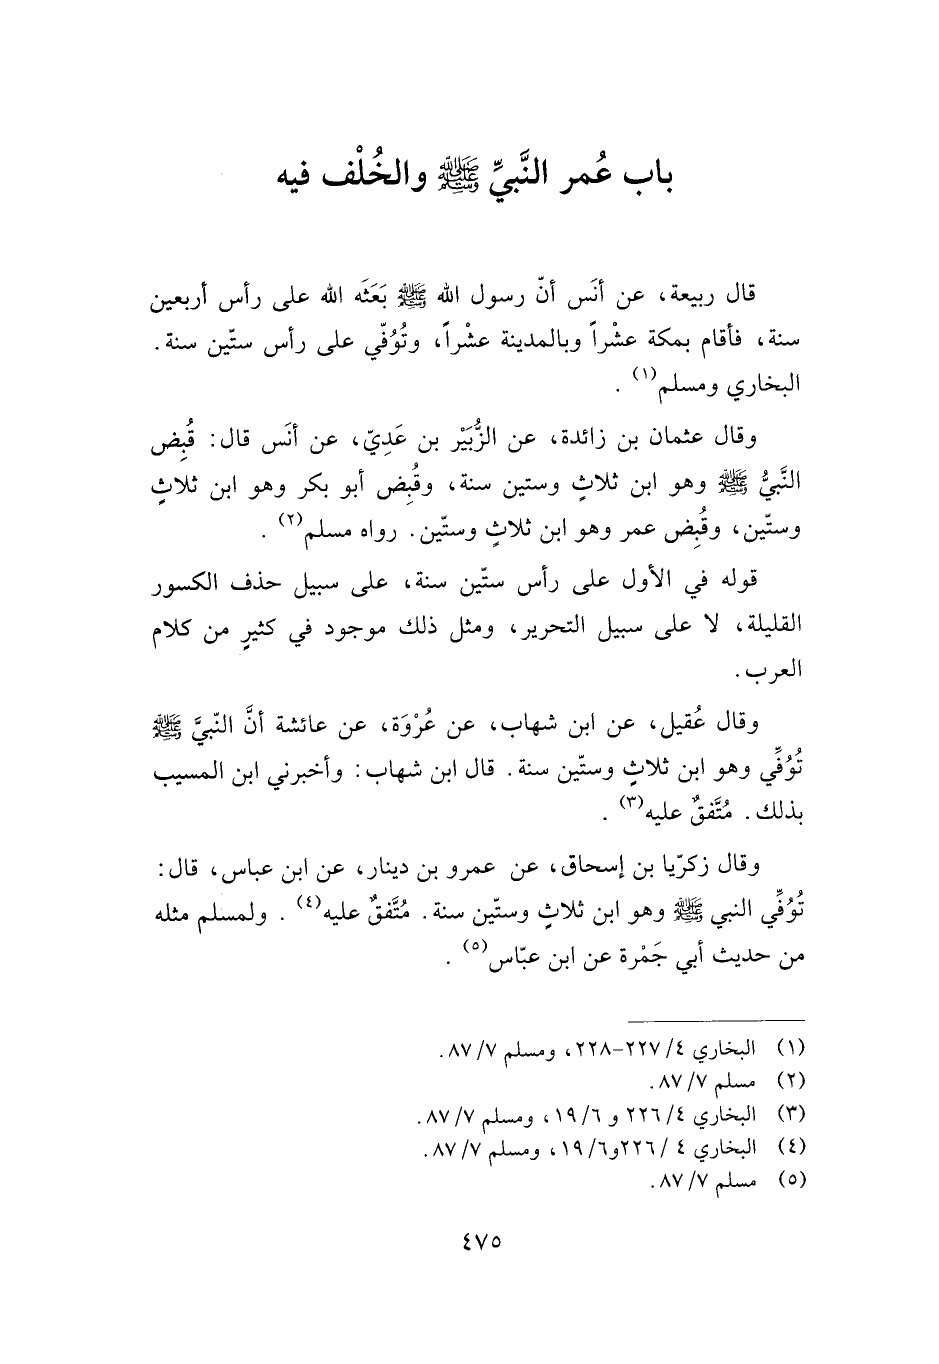 باب عُمر النَّبيِّ ﷺ والخُلْف فيه
قال ربيعة، عن أنَس أنّ رسول الله ﷺ بَعَثَه الله على رأس أربعين
سنة، فأقام بمكة عشْراً وبالمدينة عشْراً، وتُوُفّي على رأس ستّين سنة.
البخاري ومسلم(١) .
وقال عثمان بن زائدة، عن الزُّبَيْر بن عَدِيّ، عن أنَس قال: قُبِض
النَّبيُّ ﷺ وهو ابن ثلاثٍ وستين سنة، وقُبِض أبو بكر وهو ابن ثلاثٍ
وستّين، وقُبِض عمر وهو ابن ثلاثٍ وستّين. رواه مسلم(٢) .
قوله في الأول على رأس ستّين سنة، على سبيل حذف الكسور
القليلة، لا على سبيل التحرير، ومثل ذلك موجود في كثيرٍ من كلام
العرب.
وقال عُقيل، عن ابن شهاب، عن عُرْوَة، عن عائشة أنَّ النّبيَّ ﷺ
تُوُفِّي وهو ابن ثلاثٍ وستّين سنة. قال ابن شهاب: وأخبرني ابن المسيب
بذلك. مُتَّفقٌ عليه(٣) .
وقال زكريّا بن إسحاق، عن عمرو بن دينار، عن ابن عباس، قال:
تُوُفِّي النبي ﷺ وهو ابن ثلاثٍ وستّين سنة. مُتَّفقٌ عليه(٤) . ولمسلم مثله
من حديث أبي جَمْرة عن ابن عبّاس(٥) .
(١) البخاري ٤/ ٢٢٧-٢٢٨، ومسلم ٧/ ٨٧.
(٢) مسلم ٧/ ٨٧.
(٣) البخاري ٤/ ٢٢٦ و ٦/ ١٩، ومسلم ٧/ ٨٧.
(٤) البخاري ٤ / ٢٢٦و٦/ ١٩، ومسلم ٧/ ٨٧.
(٥) مسلم ٧/ ٨٧.
٤٧٥